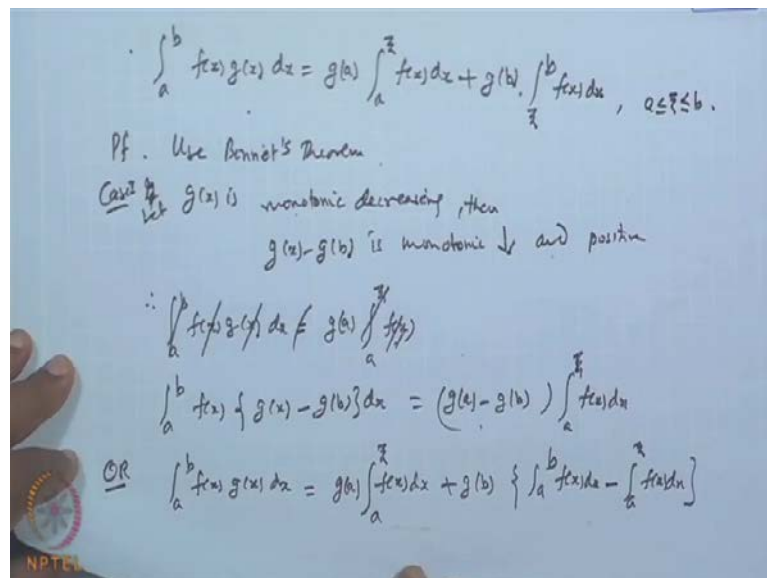 ∫_a^b f(x) g(x) dx = g(a) ∫_a^ξ f(x) dx + g(b) . ∫_ξ^b f(x) dx , a ≤ ξ ≤ b .
Pf . Use Bonnet's Theorem
Case I If Let g(x) is monotonic decreasing , then
g(x) - g(b) is monotonic ↓ and positive
∴ ∫_a^b f(x) g(x) dx = g(a) ∫_a^ξ f(x)
∫_a^b f(x) { g(x) - g(b) } dx = ( g(a) - g(b) ) ∫_a^ξ f(x) dx
OR ∫_a^b f(x) g(x) dx = g(a) ∫_a^ξ f(x) dx + g(b) { ∫_a^b f(x) dx - ∫_a^ξ f(x) dx }
NPTEL